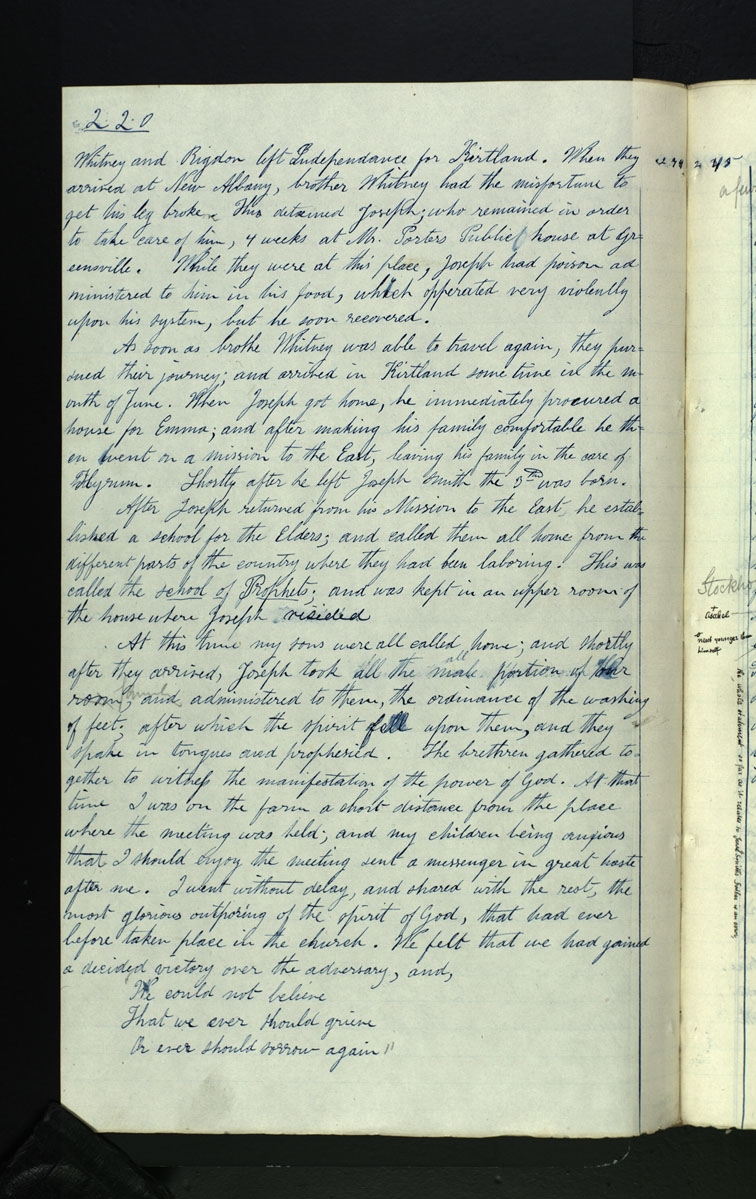 220
Whitney and Rigdon left Independance for Kirtland. When they
arrived at New Albany, brother Whitney had the misfortune to
get his leg broke. This detained Joseph; who remained in order
to take care of him, 4 weeks at Mr. Porters Public house at Gr=
eensville. While they were at this place, Joseph had poison ad
ministered to him in his food, which opperated very violently
upon his system, but he soon recovered.
As soon as brothe Whitney was able to travel again, they pur=
sued their journey; and arrived in Kirtland some time in the m-
onth of June. When Joseph got home, he immediately procured a
house for Emma; and after making his family comfortable he th=
en went on a mission to the East, leaving his family in the care of
Hyrum. Shortly after he left Joseph Smith the 3rd was born.
After Joseph returned from his Mission to the East, he estab-
lished a school for the Elders; and called them all home from the
different parts of the country where they had been laboring. This was
called the school of Prophets; and was kept in an upper room of
the house where Joseph resided
At this time my sons were all called home; and shortly
after they arrived, Joseph took all the male portion of our
all
room, and administered to them, the ordinance of the washing
of feet; after which the spirit fell upon them, and they
spake in tongues and prophesied. The brethren gathered to-
gether to witness the manifestation of the power of God. At that
time I was on the farm a short distance from the place
where the meeting was held; and my children being anxious
that I should enjoy the meeting sent a messenger in great haste
after me. I went without delay, and shared with the rest, the
most glorious outporing of the spirit of God, that had ever
before taken place in the church. We felt that we had gained
a decided victory over the adversary, and,
We could not believe
That we ever should grieve
Or ever should sorrow again"
45
Stockho
himself